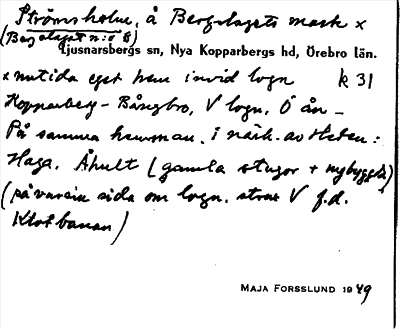 Strömsholm, å Bergslagets mark x
(Bergslaget n:o 8)
Ljusnarsbergs sn, Nya Kopparbergs hd, Örebro län.
x nutida eget hem invid lvgn k 31
Kopparberg - Bångbro, V lvgn, Ö ån -
På samma hemman, i närh. av Heden:
Haga, Åhult (gamla stugor + nybyggda)
(på varsin sida om lvgn, strax V f.d.
Klotbanan)
MAJA FORSSLUND 1949